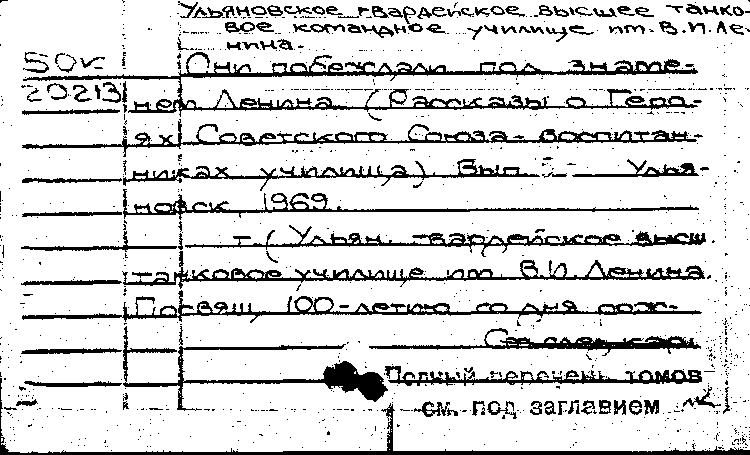 Ульяновское гвардейское высшее танко-
вое командное училище им. В.И. Ле-
нина.
50к Они победжали под знаме-
20213 нем Ленина. (Рассказы о Геро-
ях Советского Союза - воспитан-
никах училища). Вып. Улья-
новск, 1969.
т. (Ульян. гвардейское высш.
танковое училище им. В.И. Ленина.
Посвящ. 100-летию со дня рож-
См. след. карт.
Полный перечень томов
см. под заглавием